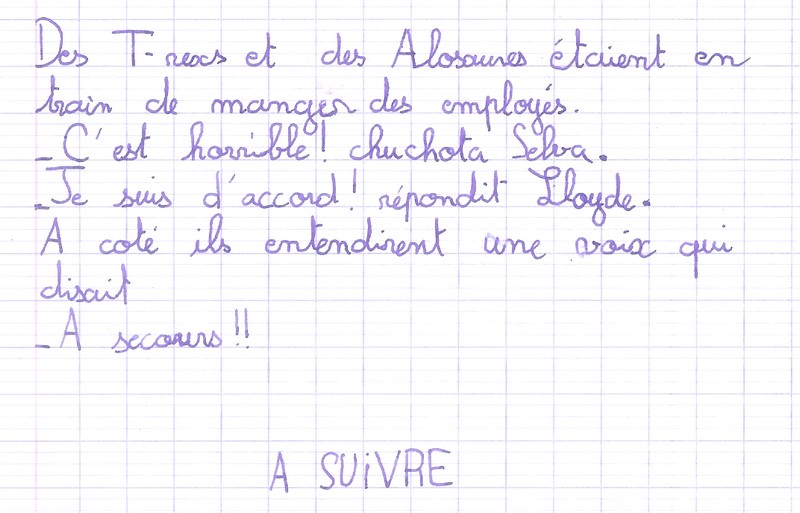 Des T-rexs et des Alosaures étaient en
train de manger des employés.
_ C'est horrible! chuchota Selva.
_ Je suis d'accord! répondit Lloyde.
A coté ils entendirent une voix qui
disait
_ A secours!!
A SUiVRE